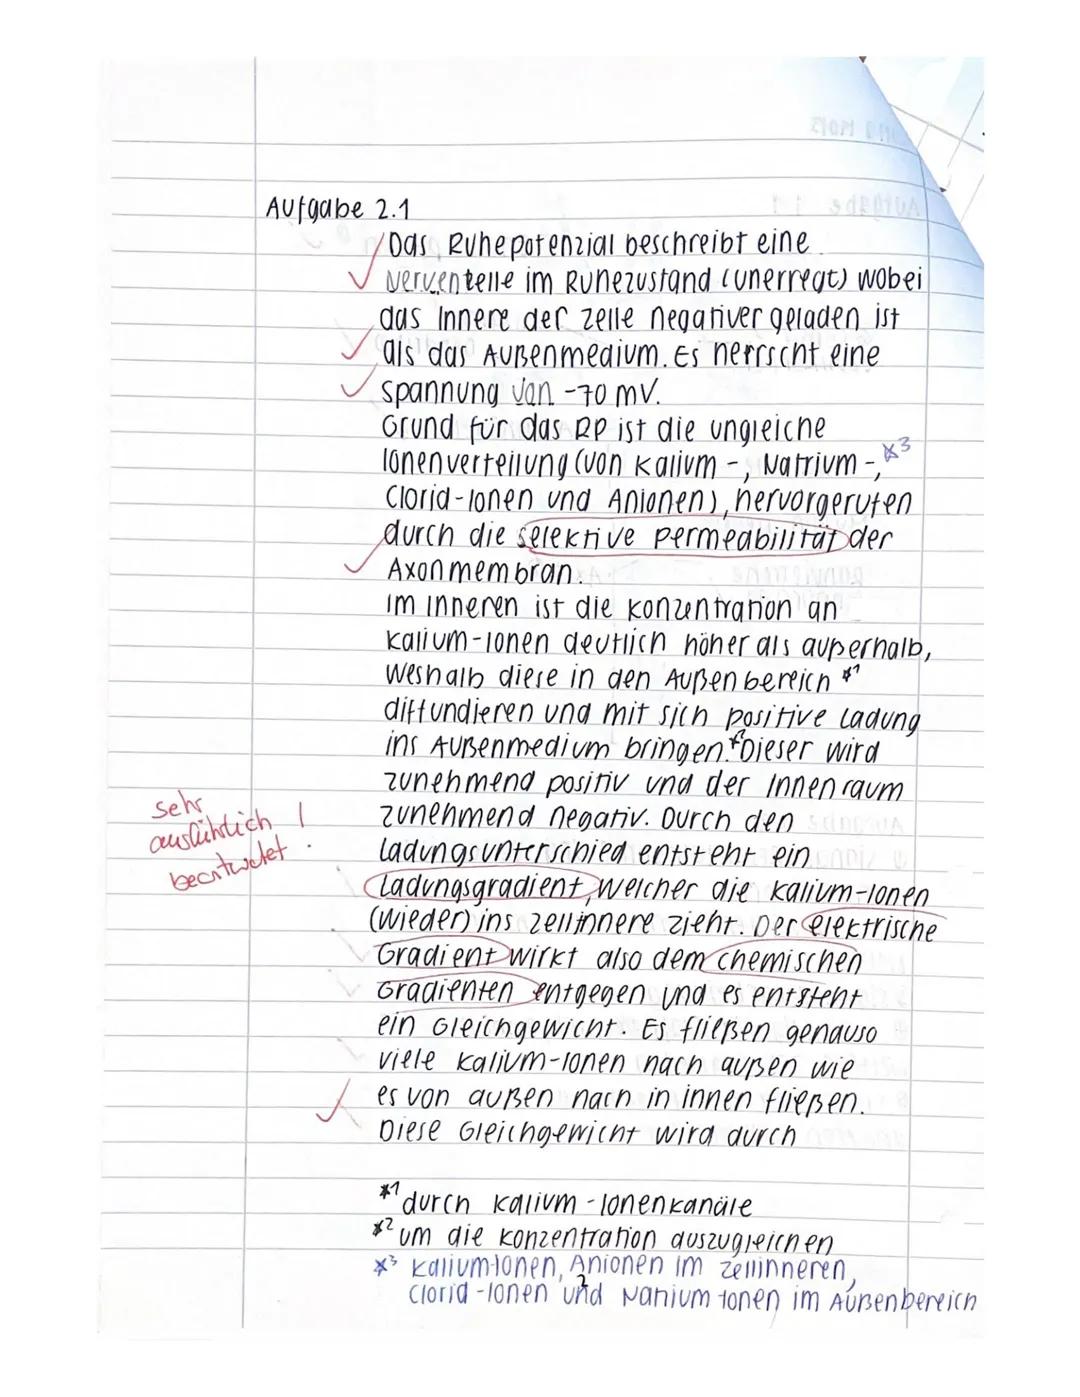 Aufgabe 2.1
Das Ruhepotenzial beschreibt eine
Nervenzelle im Ruhezustand (unerregt) wobei
das Innere der Zelle negativer geladen ist
als das Außenmedium. Es herrscht eine
Spannung von -70 mV.
Grund für das RP ist die ungleiche
Ionenverteilung (von Kalium-, Natrium-, *3
Clorid-Ionen und Anionen), hervorgerufen
durch die selektive Permeabilität der
Axonmembran.
Im Inneren ist die Konzentration an
Kalium-Ionen deutlich höher als außerhalb,
weshalb diese in den Außenbereich *1
diffundieren und mit sich positive Ladung
ins Außenmedium bringen. *2 Dieser wird
zunehmend positiv und der Innenraum
zunehmend negativ. Durch den
Ladungsunterschied entsteht ein
Ladungsgradient, welcher die Kalium-Ionen
(wieder) ins Zellinnere zieht. Der elektrische
Gradient wirkt also dem chemischen
Gradienten entgegen und es entsteht
ein Gleichgewicht. Es fließen genauso
viele Kalium-Ionen nach außen wie
es von außen nach in innen fließen.
Diese Gleichgewicht wird durch
sehr
ausführlich !
beantwortet
*1 durch Kalium-Ionenkanäle
*2 um die Konzentration auszugleichen
*3 Kalium-Ionen, Anionen im Zellinneren,
Clorid-Ionen und Natrium Ionen im Außenbereich
2